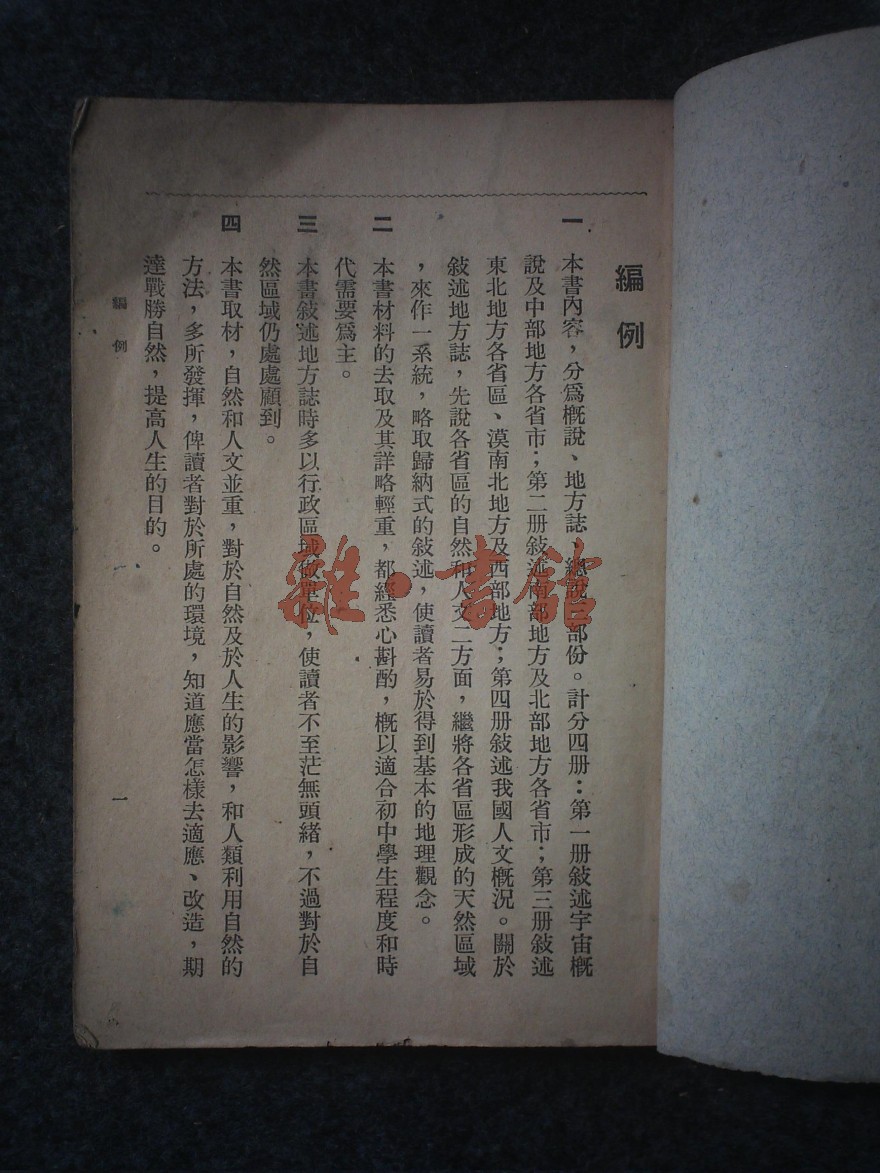 編例
一 本書內容，分爲概說、地方誌，總說三部份。計分四册：第一册敍述宇宙概
說及中部地方各省市；第二册敍述南部地方及北部地方各省市；第三册敍述
東北地方各省區、漠南北地方及西部地方；第四册敍述我國人文概況。關於
敍述地方誌，先說各省區的自然和人文二方面，繼將各省區形成的天然區域
，來作一系統，略取歸納式的敍述，使讀者易於得到基本的地理觀念。
二 本書材料的去取及其詳略輕重，都經悉心斟酌，概以適合初中學生程度和時
代需要爲主。
三 本書敍述地方誌時多以行政區域做單位，使讀者不至茫無頭緒，不過對於自
然區域仍處處顧到。
四 本書取材，自然和人文並重，對於自然及於人生的影響，和人類利用自然的
方法，多所發揮，俾讀者對於所處的環境，知道應當怎樣去適應、改造，期
達戰勝自然，提高人生的目的。
編例
一
雜·書館